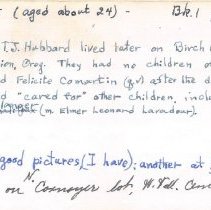 (aged about 24) - Bk. 1
T.J. Hubbard lived later on Birch
ion, Oreg. They had no children o
d Felicite Comartin (q.v) after the d
d "cared for" other children, inclu
(m. Elmer Leonard Laradour).
good pictures (I have); another at
on N. Cosnoyer lot, W. Vall. Ceme